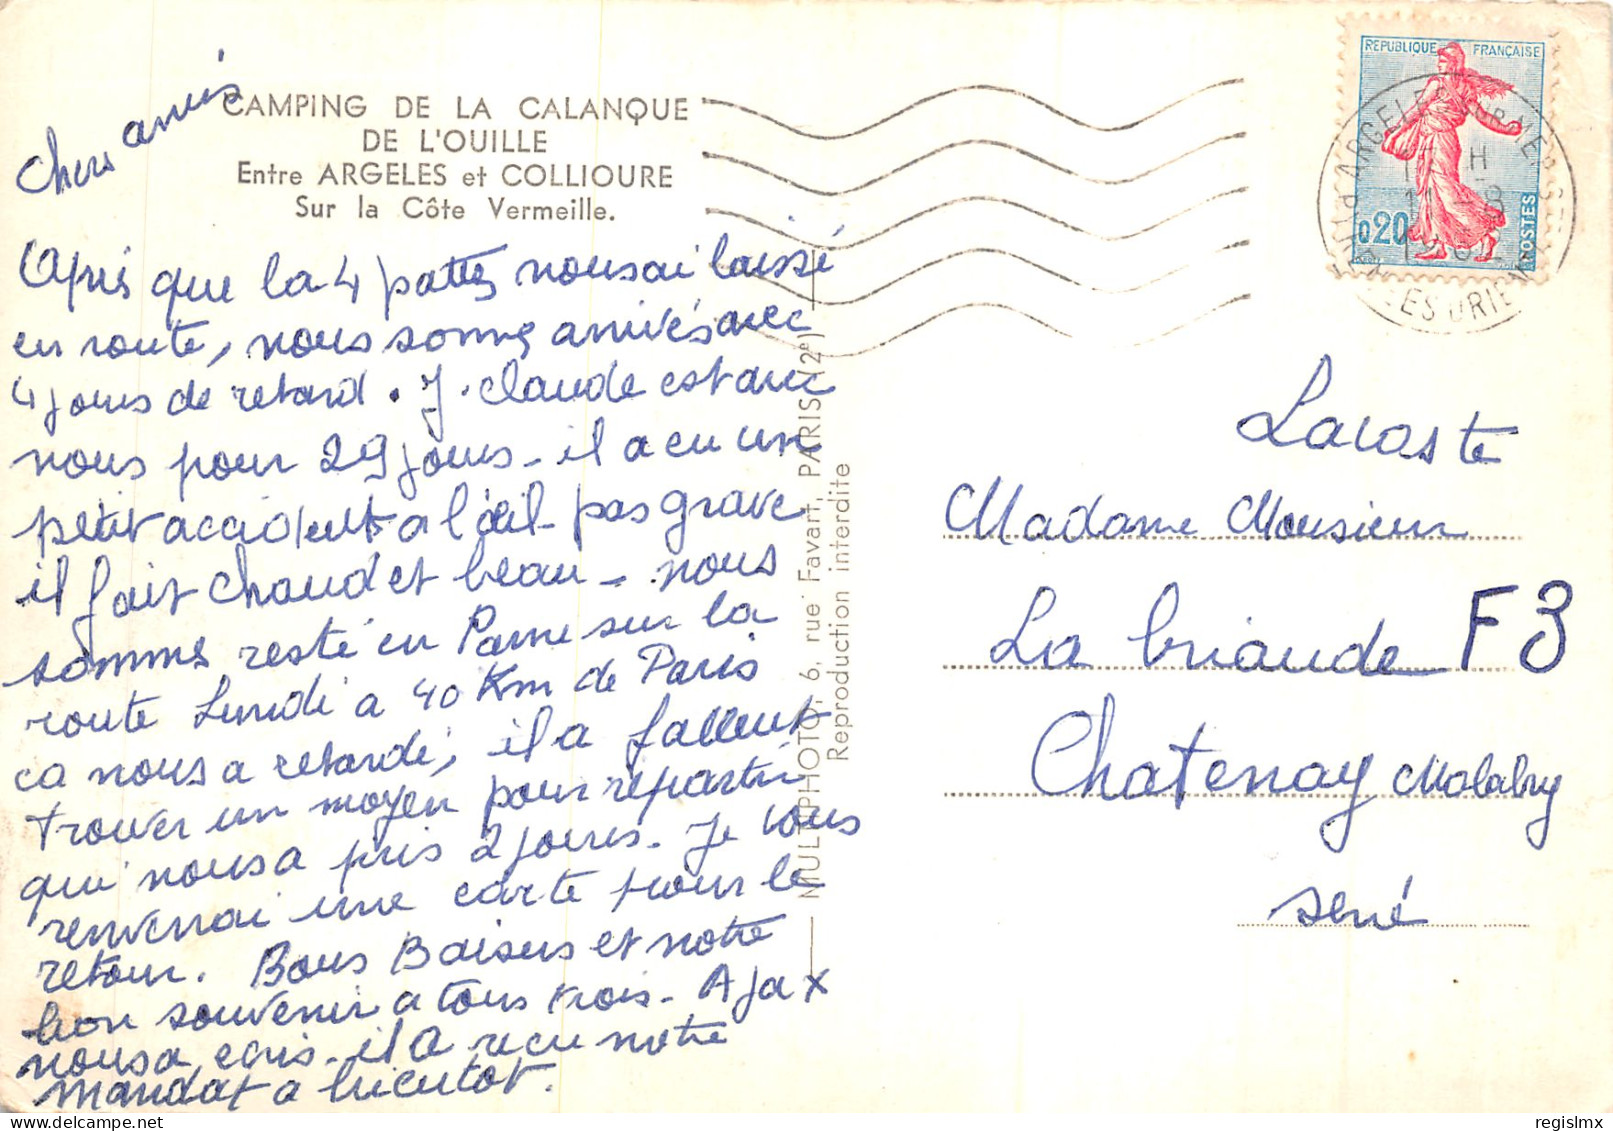 CAMPING DE LA CALANQUE
DE L'OUILLE
Entre ARGELES et COLLIOURE
Sur la Côte Vermeille.
Chers amis
Après que la 4 pattes nous ai laissé
en route, nous somms arrivés avec
4 jours de retard. J. claude est avec
nous pour 29 jours - il a eu un
petit accident a l'œil - pas grave
il fait chaud et beau - nous
somms resté en Panne sur la
route Lundi a 40 Km de Paris
ca nous a retardé, il a fallut
trouver un moyen pour repartir
qui nous a pris 2 jours. Je vous
renverrai une carte pour le
retour. Bons Baisers et notre
bon souvenir a tous trois - Ajax
nous a ecris - il a recu notre
mandat a bientot.
MULTIPHOTO, 6, rue Favart, PARIS (2e)
Reproduction interdite
REPUBLIQUE FRANÇAISE
0,20
POSTES
ARGELES SUR MER
PYRENEES ORIENTALES
Lacoste
Madame Monsieur
La briaude F3
Chatenay Malabry
Seine
regislmx